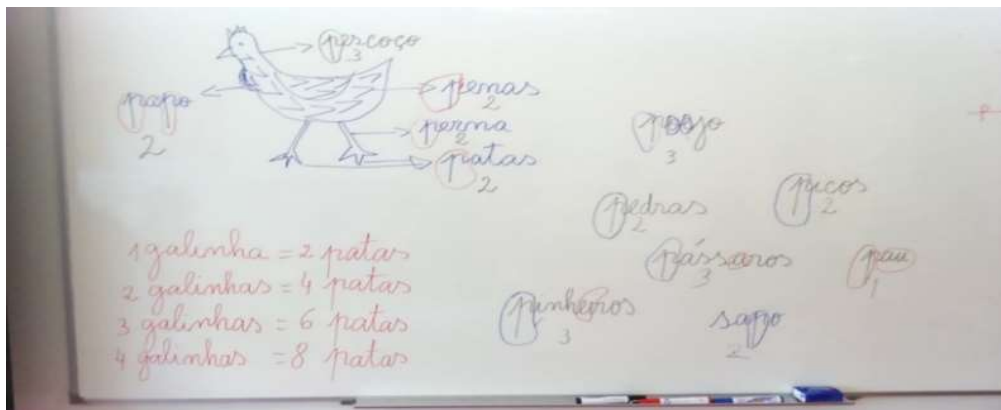 pescoço
3
penas
2
papo
2
perna
2
patas
2
3
pedras
2
picos
2
pássaros
3
pau
1
pinheiros
3
sapo
2
1 galinha = 2 patas
2 galinhas = 4 patas
3 galinhas = 6 patas
4 galinhas = 8 patas